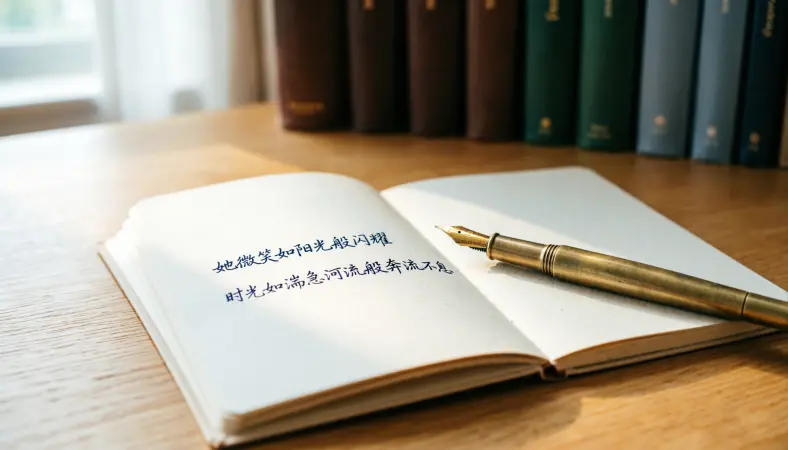 她微笑如阳光般闪耀
时光如湍急河流般奔流不息